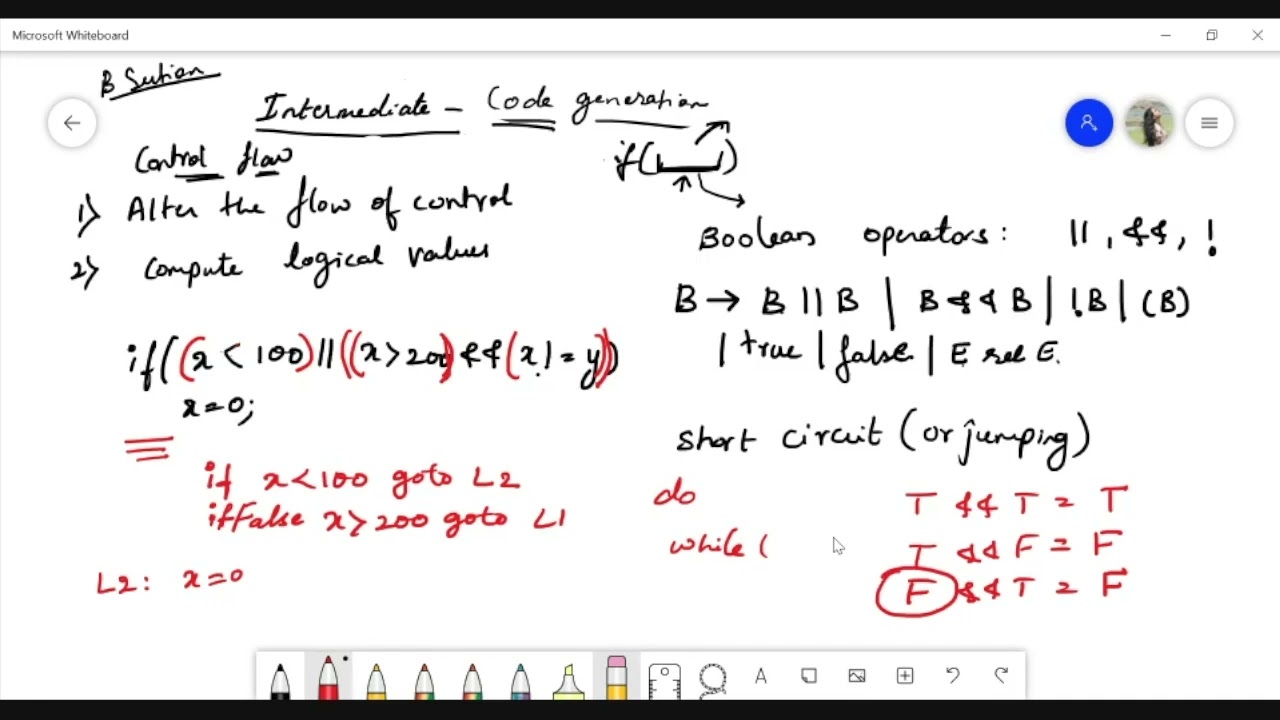 Microsoft Whiteboard
B Section
Intermediate - Code generation
Control flow
if( )
1) Alter the flow of control
2) Compute logical values
Boolean operators: ||, &&, !
B → B || B | B && B | !B | (B)
| true | false | E rel E.
if((x < 100) || ((x > 200) && (x != y))
x=0;
short circuit (or jumping)
if x<100 goto L2
ifFalse x>200 goto L1
L2: x=0
do
while (
T && T = T
T && F = F
F && T = F
A